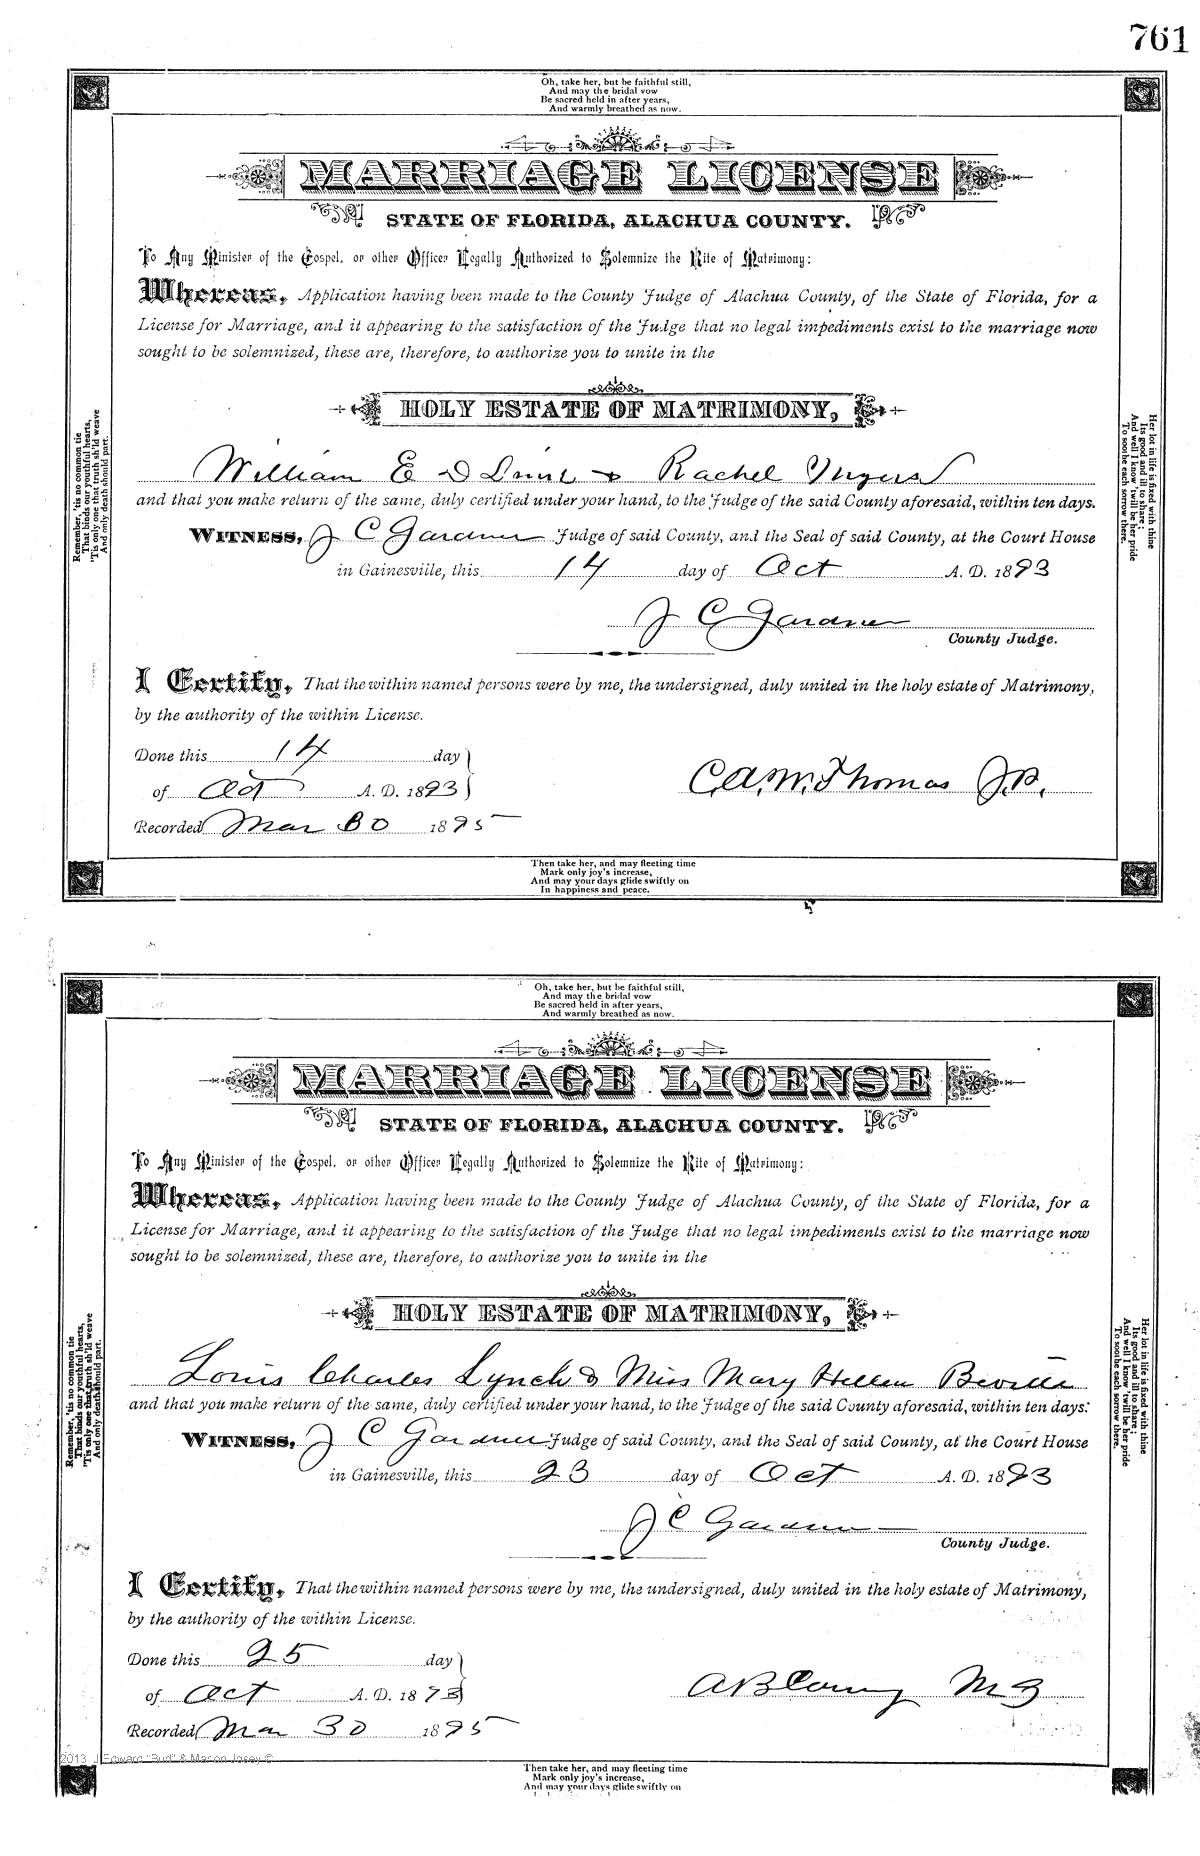 761
Oh, take her, but be faithful still,
And may the bridal vow
Be sacred held in after years,
And warmly breathed as now.
MARRIAGE LICENSE
STATE OF FLORIDA, ALACHUA COUNTY.
To Any Minister of the Gospel, or other Officer Legally Authorized to Solemnize the Rite of Matrimony:
Whereas, Application having been made to the County Judge of Alachua County, of the State of Florida, for a
License for Marriage, and it appearing to the satisfaction of the Judge that no legal impediments exist to the marriage now
sought to be solemnized, these are, therefore, to authorize you to unite in the
HOLY ESTATE OF MATRIMONY,
William E & Rachel Myers
and that you make return of the same, duly certified under your hand, to the Judge of the said County aforesaid, within ten days.
WITNESS, J C Gardner Judge of said County, and the Seal of said County, at the Court House
in Gainesville, this 14 day of Oct A. D. 1893
J C Gardner
County Judge.
I Certify, That the within named persons were by me, the undersigned, duly united in the holy estate of Matrimony,
by the authority of the within License.
Done this 14 day
of Oct A. D. 1893
C.A.W. Thomas J.P.
Recorded Mar 30 1895
Remember, 'tis no common tie
That binds our youthful hearts,
'Tis only one that truth sh'ld weave
And only death should part.
Her lot in life is fixed with thine
Its good and ill to share;
And well I know 'twill be her pride
To soothe each sorrow there.
Then take her, and may fleeting time
Mark only joy's increase,
And may your days glide swiftly on
In happiness and peace.
Oh, take her, but be faithful still,
And may the bridal vow
Be sacred held in after years,
And warmly breathed as now.
MARRIAGE LICENSE
STATE OF FLORIDA, ALACHUA COUNTY.
To Any Minister of the Gospel, or other Officer Legally Authorized to Solemnize the Rite of Matrimony:
Whereas, Application having been made to the County Judge of Alachua County, of the State of Florida, for a
License for Marriage, and it appearing to the satisfaction of the Judge that no legal impediments exist to the marriage now
sought to be solemnized, these are, therefore, to authorize you to unite in the
HOLY ESTATE OF MATRIMONY,
Louis Charles Lynch & Miss Mary Hellen Beville
and that you make return of the same, duly certified under your hand, to the Judge of the said County aforesaid, within ten days.
WITNESS, J C Gardner Judge of said County, and the Seal of said County, at the Court House
in Gainesville, this 23 day of Oct A. D. 1893
J C Gardner
County Judge.
I Certify, That the within named persons were by me, the undersigned, duly united in the holy estate of Matrimony,
by the authority of the within License.
Done this 25 day
of Oct A. D. 1893
M G
Recorded Mar 30 1895
Remember, 'tis no common tie
That binds our youthful hearts,
'Tis only one that truth sh'ld weave
And only death should part.
Her lot in life is fixed with thine
Its good and ill to share;
And well I know 'twill be her pride
To soothe each sorrow there.
2013 J Edward "Bud" & Marion Josey ©
Then take her, and may fleeting time
Mark only joy's increase,
And may your days glide swiftly on